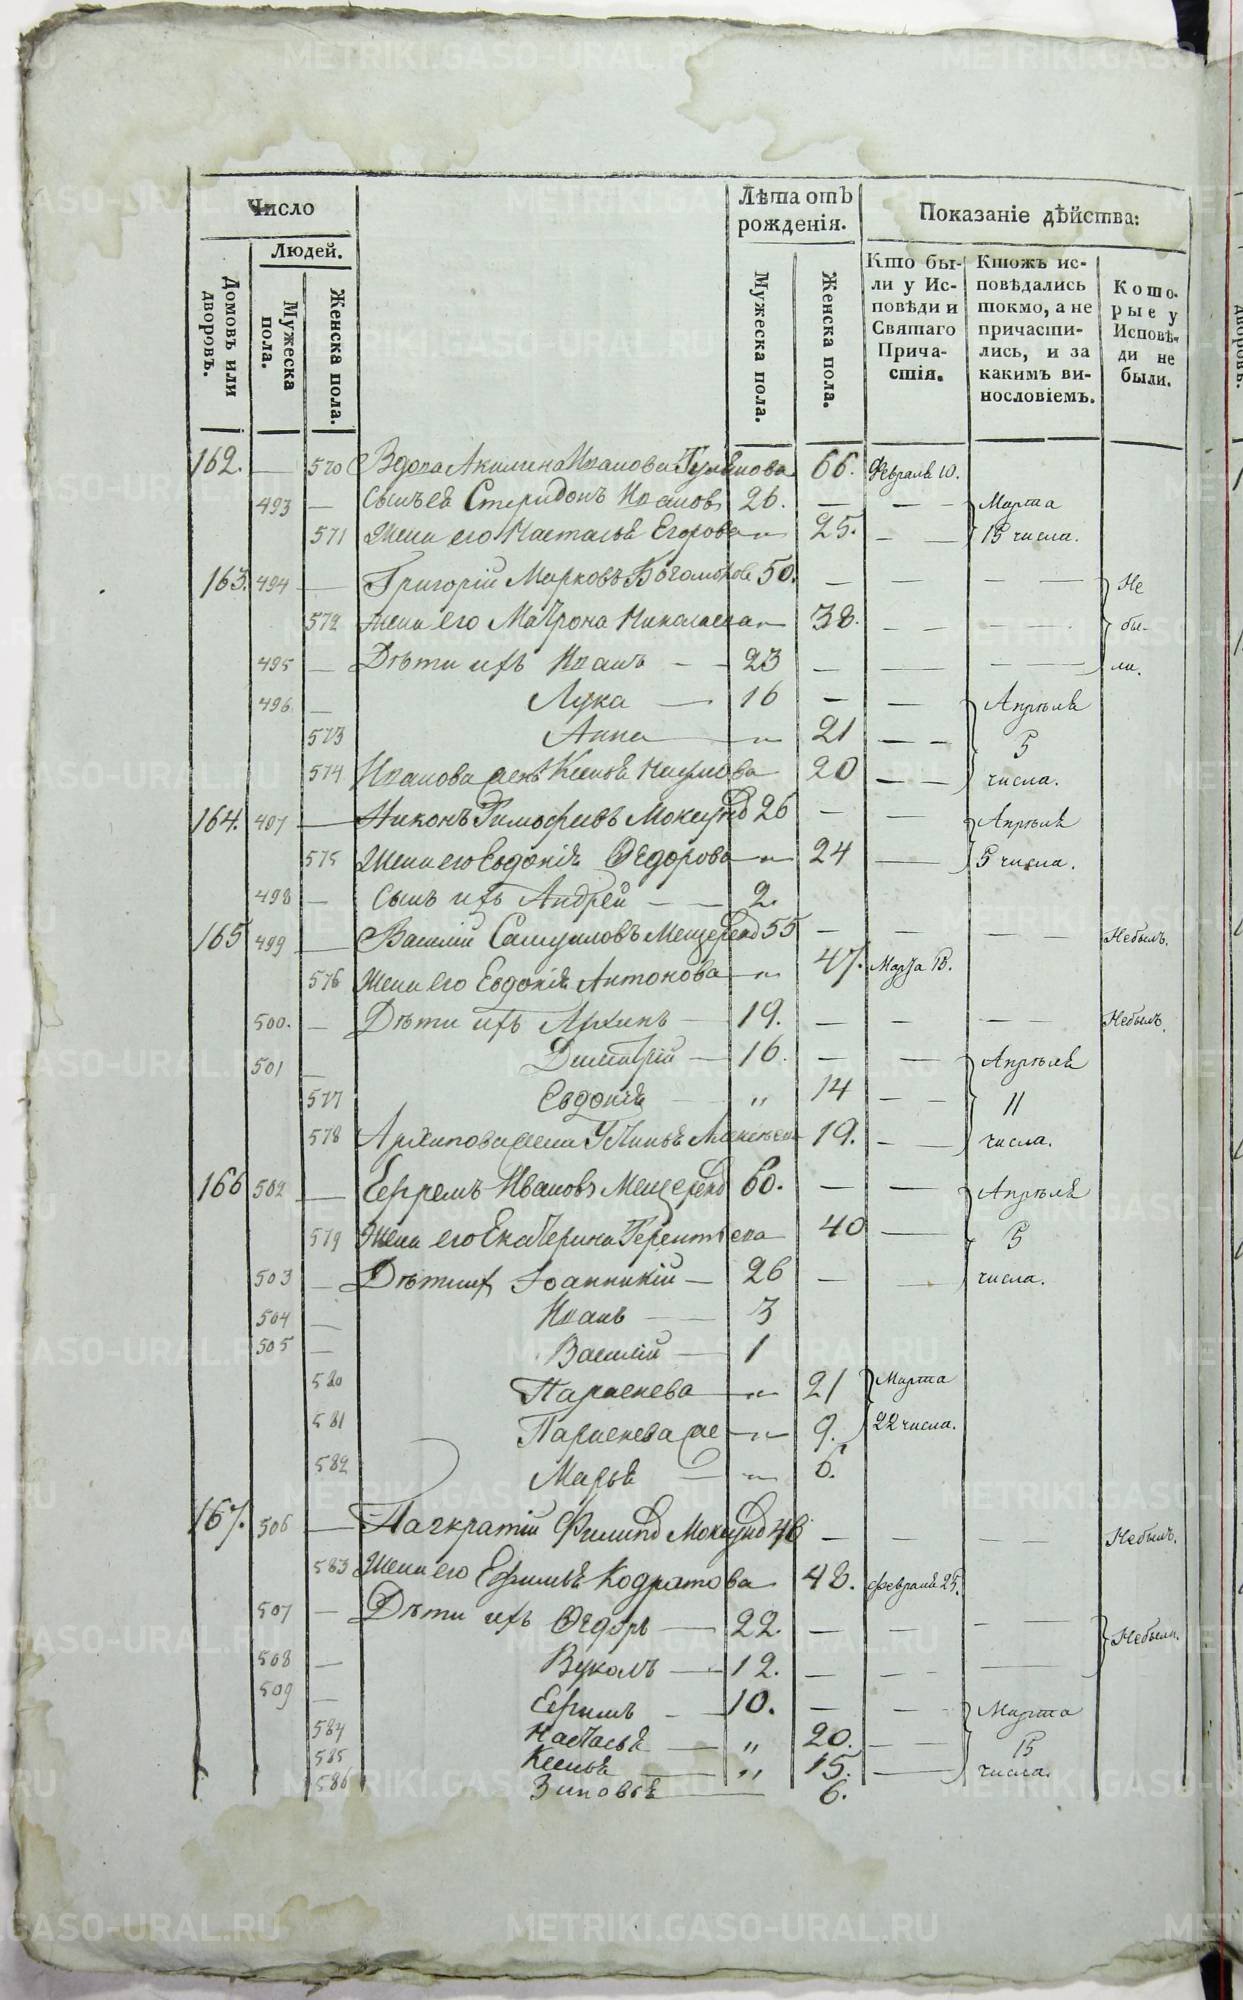 Число
Лѣта отъ рожденія.
Показаніе дѣйства:
Людей.
Домовъ или дворовъ.
Мужеска пола.
Женска пола.
Мужеска пола.
Женска пола.
Кто были у Исповѣди и Святаго Причастія.
Ктожъ исповѣдались токмо, а не причастились, и за какимъ винословіемъ.
Которые у Исповѣди не были.
162. — 570 Вдова Акилина Иванова 66. Февраля 10.
493 — Сынъ ея Спиридонъ Ивановъ 26. — — — Марта
571 Жена его Настасья Егорова — „ — 25. — — 15 числа.
163. 494 — Григорій Марковъ 50. — — — — — Не
572 Жена его Матрона Николаева — 38. — — — — — бы-
495 — Дѣти ихъ Иванъ — — 23 — — — — ли.
496 — Лука — 16 — — Апрѣля
573 Анна — „ — 21 — — 5
574 Иванова жена Ксенья Наумова 20 — — числа.
164. 497 — Никонъ Тимофеевъ 26 — — Апрѣля
575 Жена его Евдокія Ѳедорова — „ — 24 — 5 числа.
498 — Сынъ ихъ Андрей — — 2.
165 499 — Василій Самуиловъ 55 — — — — Небылъ.
576 Жена его Евдокія Антонова — „ 47. Марта 15.
500. — Дѣти ихъ Архипъ — 19. — — — — Небылъ.
501 — Димитрій — 16. — — Апрѣля
577 Евдокія — „ 14 — — 11
578 Архипова жена 19. — — числа.
166 502 — Ефремъ Ивановъ 60. — — Апрѣля
579 Жена его Екатерина Терентьева 40 — 5
503 — Дѣти их Іоанникій — 26 — — числа.
504 — Иванъ — — 3
505 — Василій — 1
580 Параскева — „ — 21 Марта
581 Параскева — „ — 9. 22 числа.
582 Марья — — „ — 6.
167. 506 — Панкратій 46 — — — — Небылъ.
583 Жена его Ефимья Кодратова 48. февраля 25.
507 — Дѣти ихъ Ѳедоръ — 22. — — — Небыли.
508 — Вуколъ — 12. — — — —
509 — Ефимъ — — 10. — — Марта
584 Настасья — „ 20. — — 15
585 Ксенья — „ 15. — числа.
586 Зиновья — 6.
METRIKI.GASO-URAL.RU